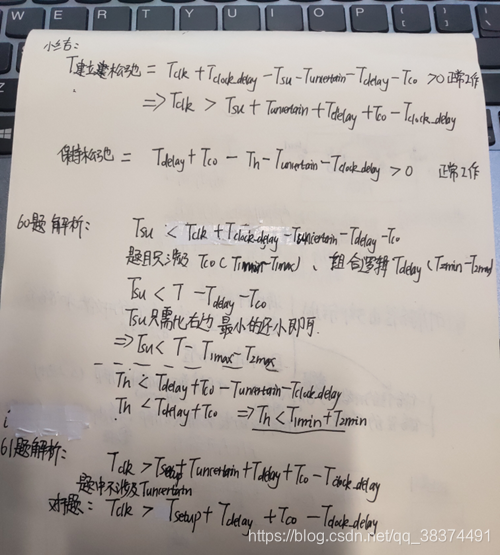 Q W E R T Y U I O P
小结:
T建立建松弛 = Tclk + Tclock_delay - Tsu - Tuncertain - Tdelay - Tco > 0 正常工作
⇒ Tclk > Tsu + Tuncertain + Tdelay + Tco - Tclock_delay
保持松弛 = Tdelay + Tco - Th - Tuncertain - Tclock_delay > 0 正常工作
60题解析:
Tsu < Tclk + Tclock_delay - Tuncertain - Tdelay - Tco
题目只涉及 Tco (T1min-T1max)、组合逻辑 Tdelay (T2min-T2max)
Tsu < T - Tdelay - Tco
Tsu只需比右边最小的还小即可
⇒ Tsu < T - T1max - T2max
Th < Tdelay + Tco - Tuncertain - Tclock_delay
Th < Tdelay + Tco ⇒ Th < T1min + T2min
61题解析:
Tclk > Tsetup + Tuncertain + Tdelay + Tco - Tclock_delay
题中不涉及Tuncertain
对于题: Tclk > Tsetup + Tdelay + Tco - Tclock_delay
https://blog.csdn.net/qq_38374491